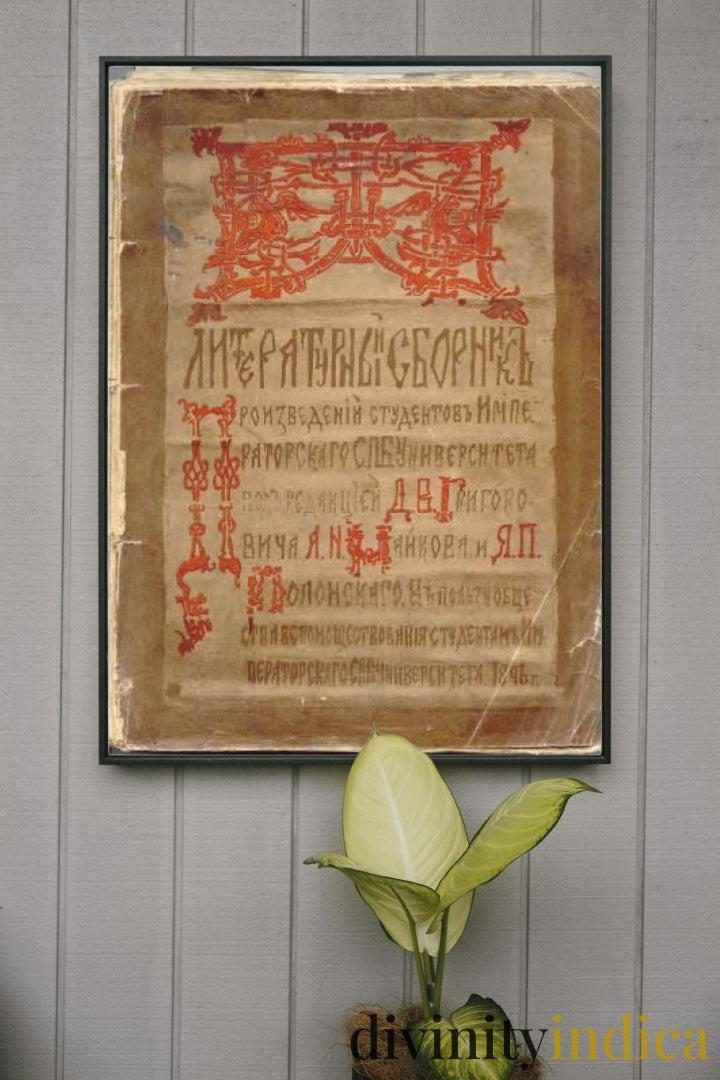 ЛИТЕРАТУРНЫЙ СБОРНИКЪ
ПРОИЗВЕДЕНІЙ СТУДЕНТОВЪ ИМПЕ-
РАТОРСКАГО СПБ УНИВЕРСИТЕТА
ПОДЪ РЕДАКЦІЕЙ Д.В. ГРИГОРО-
ВИЧА А.Н. МАЙКОВА и Я.П.
ПОЛОНСКАГО. ВЪ ПОЛЬЗУ ОБЩЕ-
СТВА ВСПОМОЩЕСТВОВАНІЯ СТУДЕНТАМЪ ИМ-
ПЕРАТОРСКАГО СПБ УНИВЕРСИТЕТА. 1896 г.
divinityindica